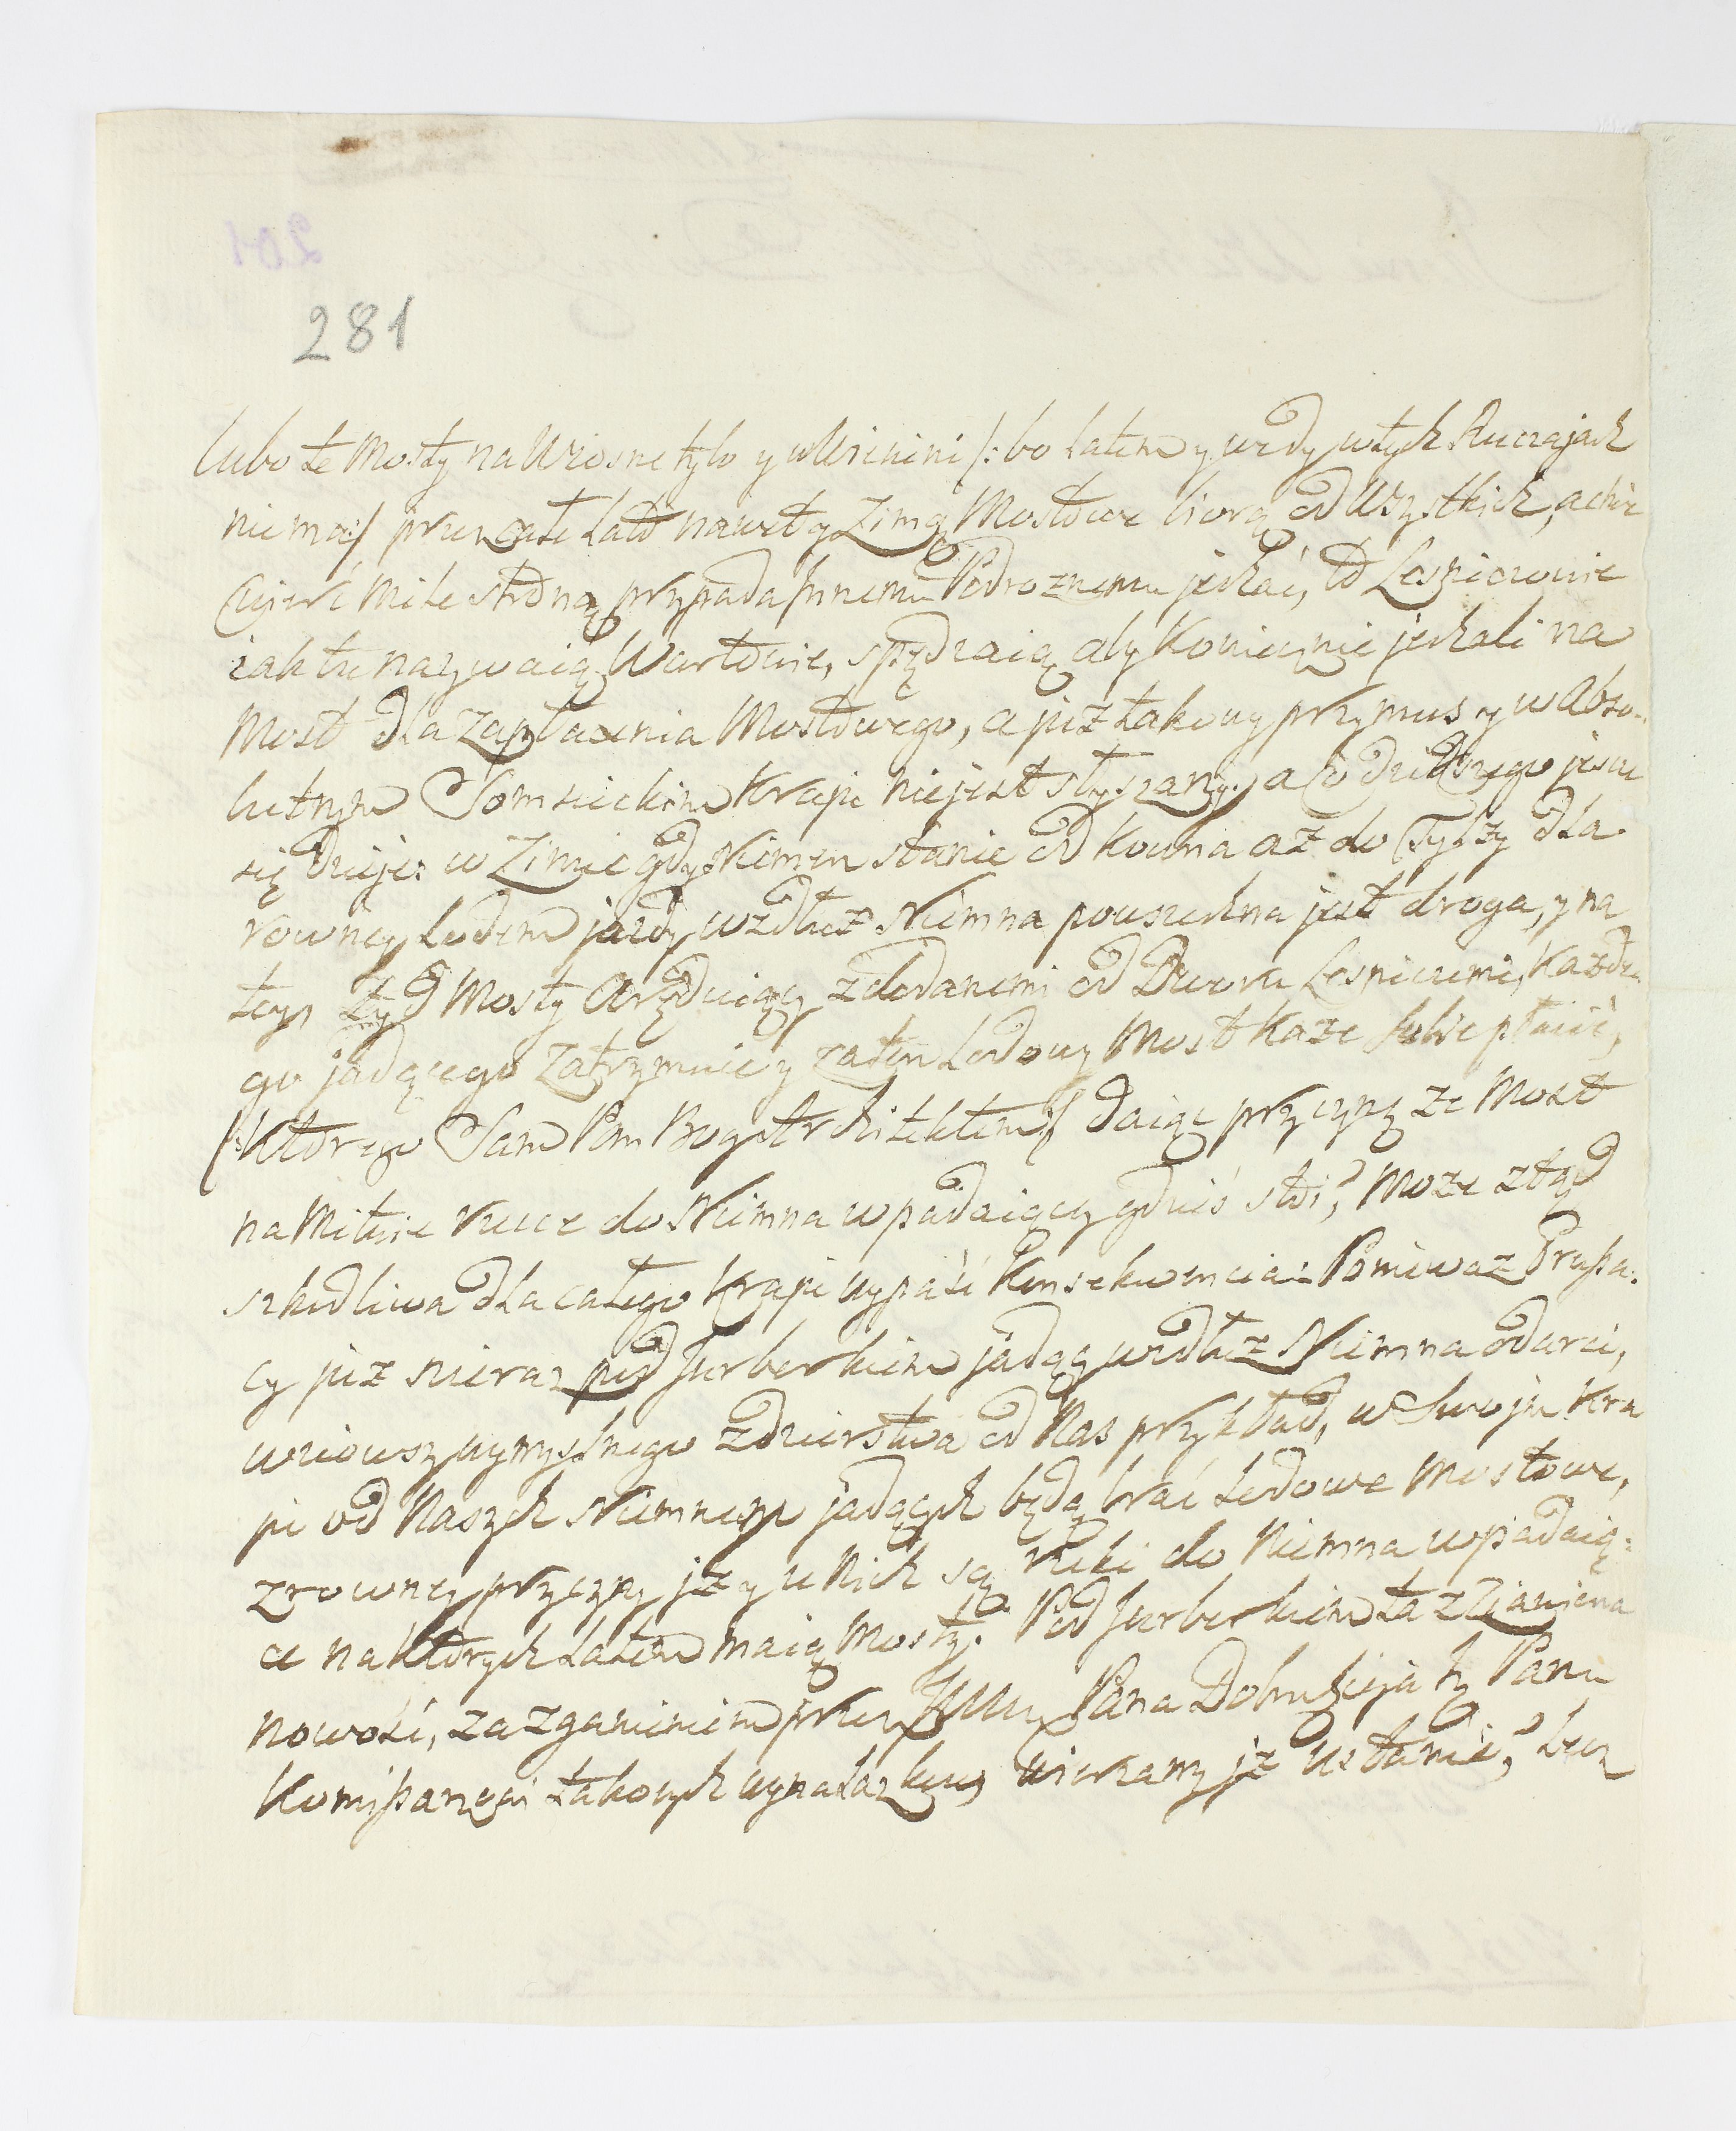 281
lubo te Mosty na Wiosne tylo y w Jesieni /: bo latem y wody w tych Ruczajach
nie ma :/ przez całe Lato nawet y Zimą Mostowe biorą od Wszystkich, a choc
Cwierć Mile stroną przypada Jnnemu Podroznemu jechać, to Leśniczowie
iak tu nazywaią Wartowie, spędzaią aby Koniecznie jechali na
Most dla Zapłacenia Mostowego, a juz takowy przymus y w Abso-
lutnym Somsieckim Kraju nie jest słyszany. a Co dziwnego jescze
się dzieje: w Zimie gdy Niemen stanie od Kowna az do Tylży dla
rowney Lodem jazdy wzdłuz Niemna powszechna jest droga, y na
tey, Żyd Mosty Aręduiący z dodanemi od Dworu Lesniczemi, Kazde-
go jadącego Zatrzymuie y za ten Lodowy Most Kaze Sobie płacić,
/: Ktorego Sam Pan Bog Architektem :/ daiąc przyczynę ze Most
na Mituie rzece do Niemna wpadaiącey gdzieś stoi, Moze ztąd
szkodliwa dla całego Kraju wypaść Konsekwencia: Poniewaz Prusa-
cy juz nieraz pod Jurborkiem jadąc wzdłuz Niemna odarci,
wziowszy wymyslnego zdzierstwa od Nas przykład, w Swoju Kra
ju od Naszych Niemnem jadących będą brać Lodowe Mostowe,
z rowney przyczyny jż y u Nich są rzeki do Niemna wpadaią-
ce na Ktorych Latem maią Mosty. Pod Jurborkiem ta zjawiona
nowość, za zganieniem przez JWW Pana Dobrodzieja y Pana
Komisarza takowych wynalazkow, wierzamy jż ustanie, lecz